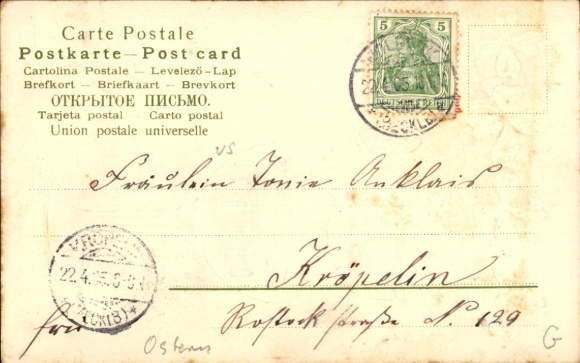 Carte Postale
Postkarte – Post card
Cartolina Postale – Levelező-Lap
Brefkort – Briefkaart – Brevkort
ОТКРЫТОЕ ПИСЬМО.
Tarjeta postal – Carto postal
Union postale universelle
5 5
DEUTSCHES REICH
(MECKLB)
VS
Fräulein Tonie Anklais
Kröpelin
Rostock straße N. 129
KRÖPELIN
22.4. 8-9
(MECKLB) *
frei
Ostern
G